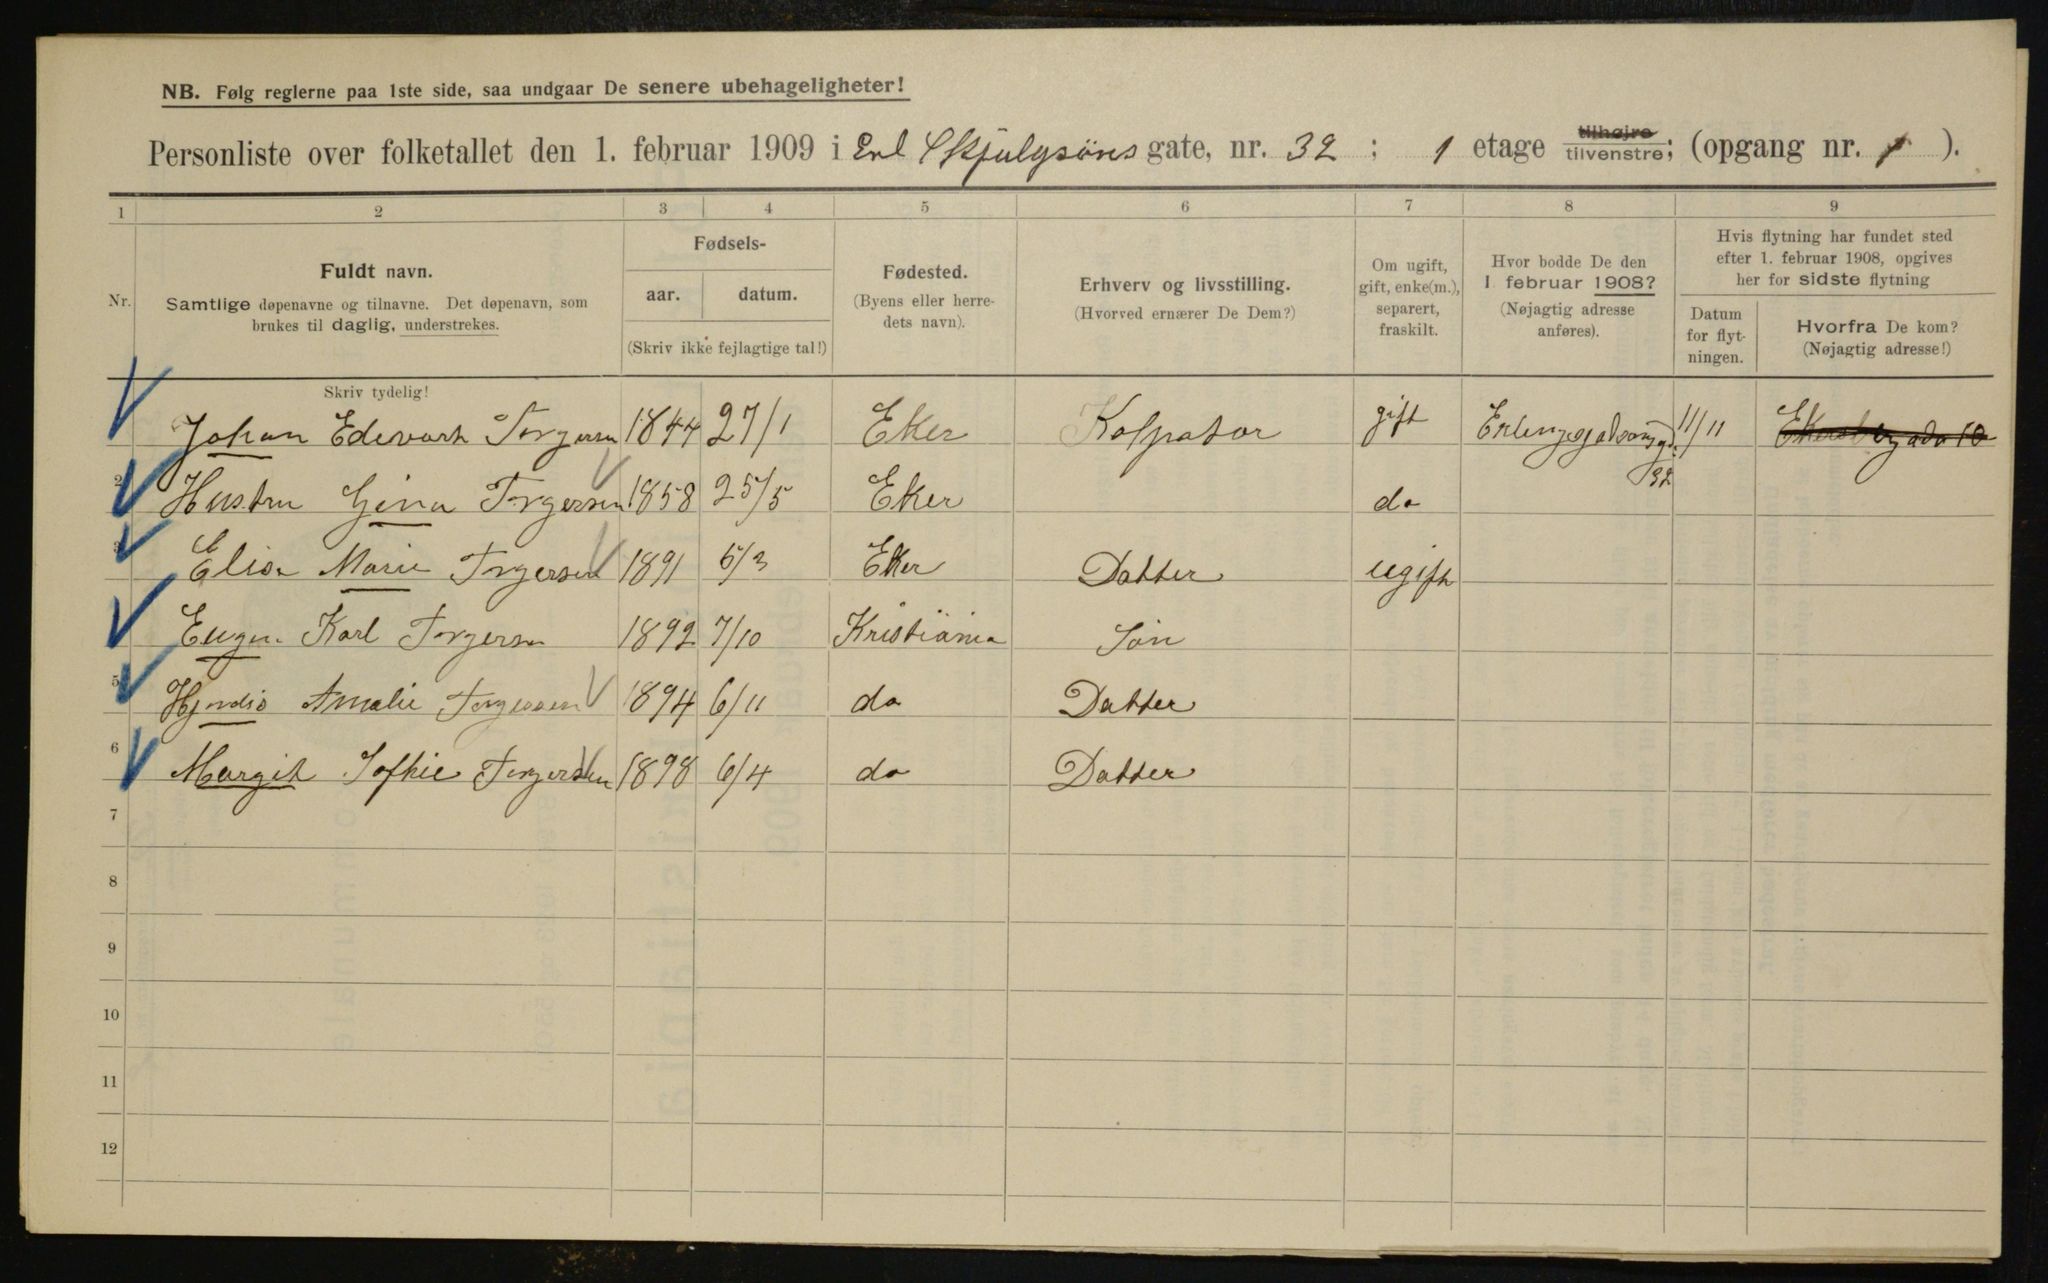 NB. Følg reglerne paa 1ste side, saa undgaar De senere ubehageligheter!
Personliste over folketallet den 1. februar 1909 i Erl Skjalgsöns gate, nr. 32 ; 1 etage tilhøjre tilvenstre; (opgang nr. 1 ).
1 2 3 4 5 6 7 8 9
Nr.
Fuldt navn.
Samtlige døpenavne og tilnavne. Det døpenavn, som
brukes til daglig, understrekes.
Skriv tydelig!
Fødsels-
aar. datum.
(Skriv ikke fejlagtige tal!)
Fødested.
(Byens eller herre-
dets navn).
Erhverv og livsstilling.
(Hvorved ernærer De Dem?)
Om ugift,
gift, enke(m.),
separert,
fraskilt.
Hvor bodde De den
1. februar 1908?
(Nøjagtig adresse
anføres).
Hvis flytning har fundet sted
efter 1. februar 1908, opgives
her for sidste flytning
Datum
for flyt-
ningen.
Hvorfra De kom?
(Nøjagtig adresse!)
Johan Edevart Torgersen 1844 27/1 Eker gift 11/11
32
2 Hustru Gina Torgersen 1858 25/5 Eker do
3 Elise Marie Torgersen 1891 5/3 Eker Datter ugift
Eugen Karl Torgersen 1892 7/10 Kristiania Sön
5 Hjørdis Amalie Torgersen 1894 6/11 do Datter
6 Margit Sofhie Torgersen 1898 6/4 do Datter
7
8
9
10
11
12